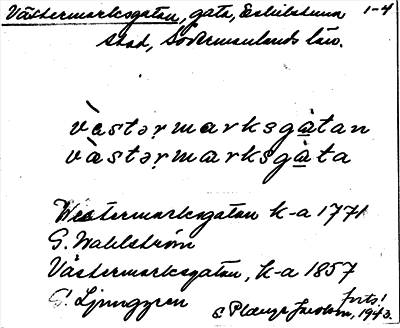 Västermarksgatan, gata, Eskilstuna 1-4
stad, Södermanlands län.
vàstərmarksgàtan
vàstərmarksgàta
Westermarksgatan k-a 1771
G. Wahlström
Västermarksgatan, k-a 1857
G. Ljunggren
forts!
1943.